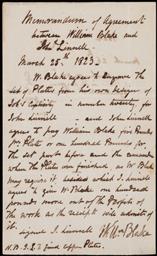 Memorandum of Agreement
between William Blake and
John Linnell
March 25th 1823
W. Blake agrees to Engrave the
Set of Plates from his own designs of
Job's Captivity in number twenty, for
John Linnell — and John Linnell
agrees to pay William Blake five Pounds
pr. Plate or one hundred Pounds for
the set part before and the remainder
when the Plates are finished, as Mr Blake
may require it, besides which J. Linnell
agrees to give W. Blake one hundred
pounds more out of the Profits of
the work as the receipts will admit of
it.
Signed J. Linnell
Wm Blake
N.B. J.L. to find Copper Plates.